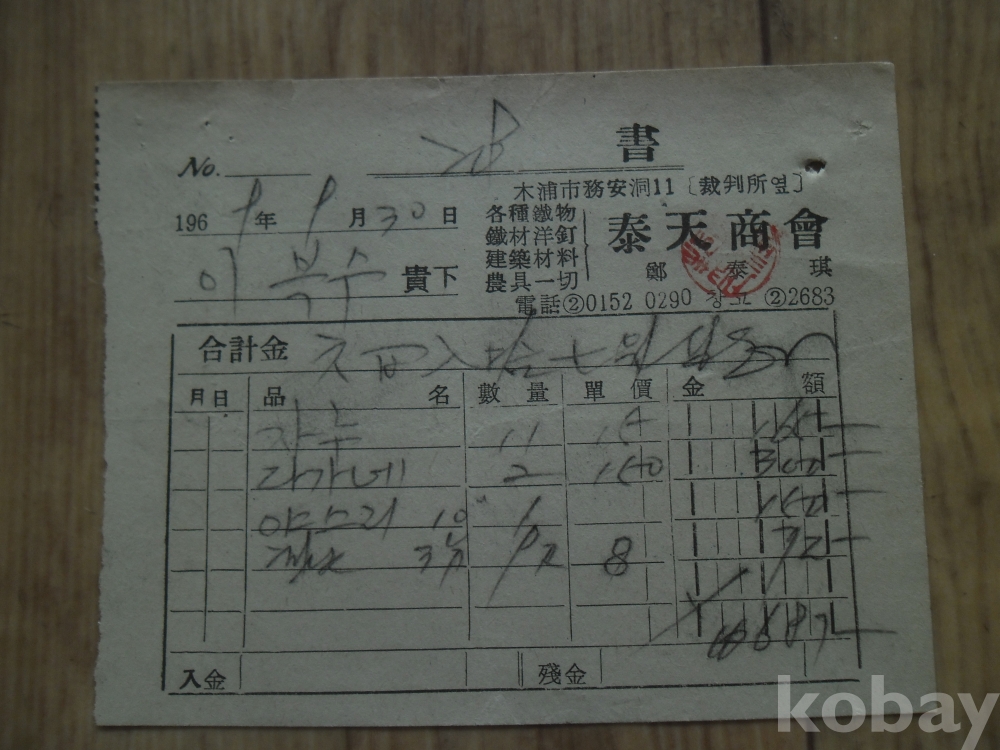 書
No.
木浦市務安洞11 〔裁判所옆〕
1969年 9月30日
各種鐵物
鐵材洋釘
建築材料
農具一切
泰天商會
鄭泰琪
이복수 貴下
電話②0152 0290 창고 ②2683
合計金
月日 品名 數量 單價 金額
11 15 165
2 150 300
야스리 10" 1 150
8 72
687
入金 殘金
kobay